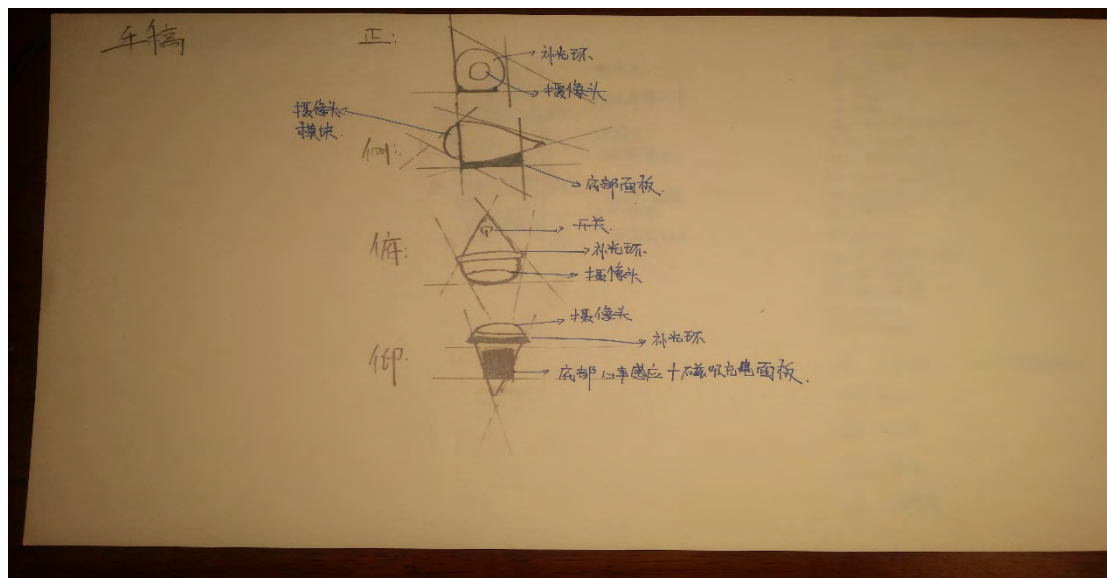 手稿
正:
补光环
摄像头
摄像头
模块
侧:
底部面板
俯:
开关
补光环
摄像头
仰:
摄像头
补光环
底部心率感应+磁吸充电面板